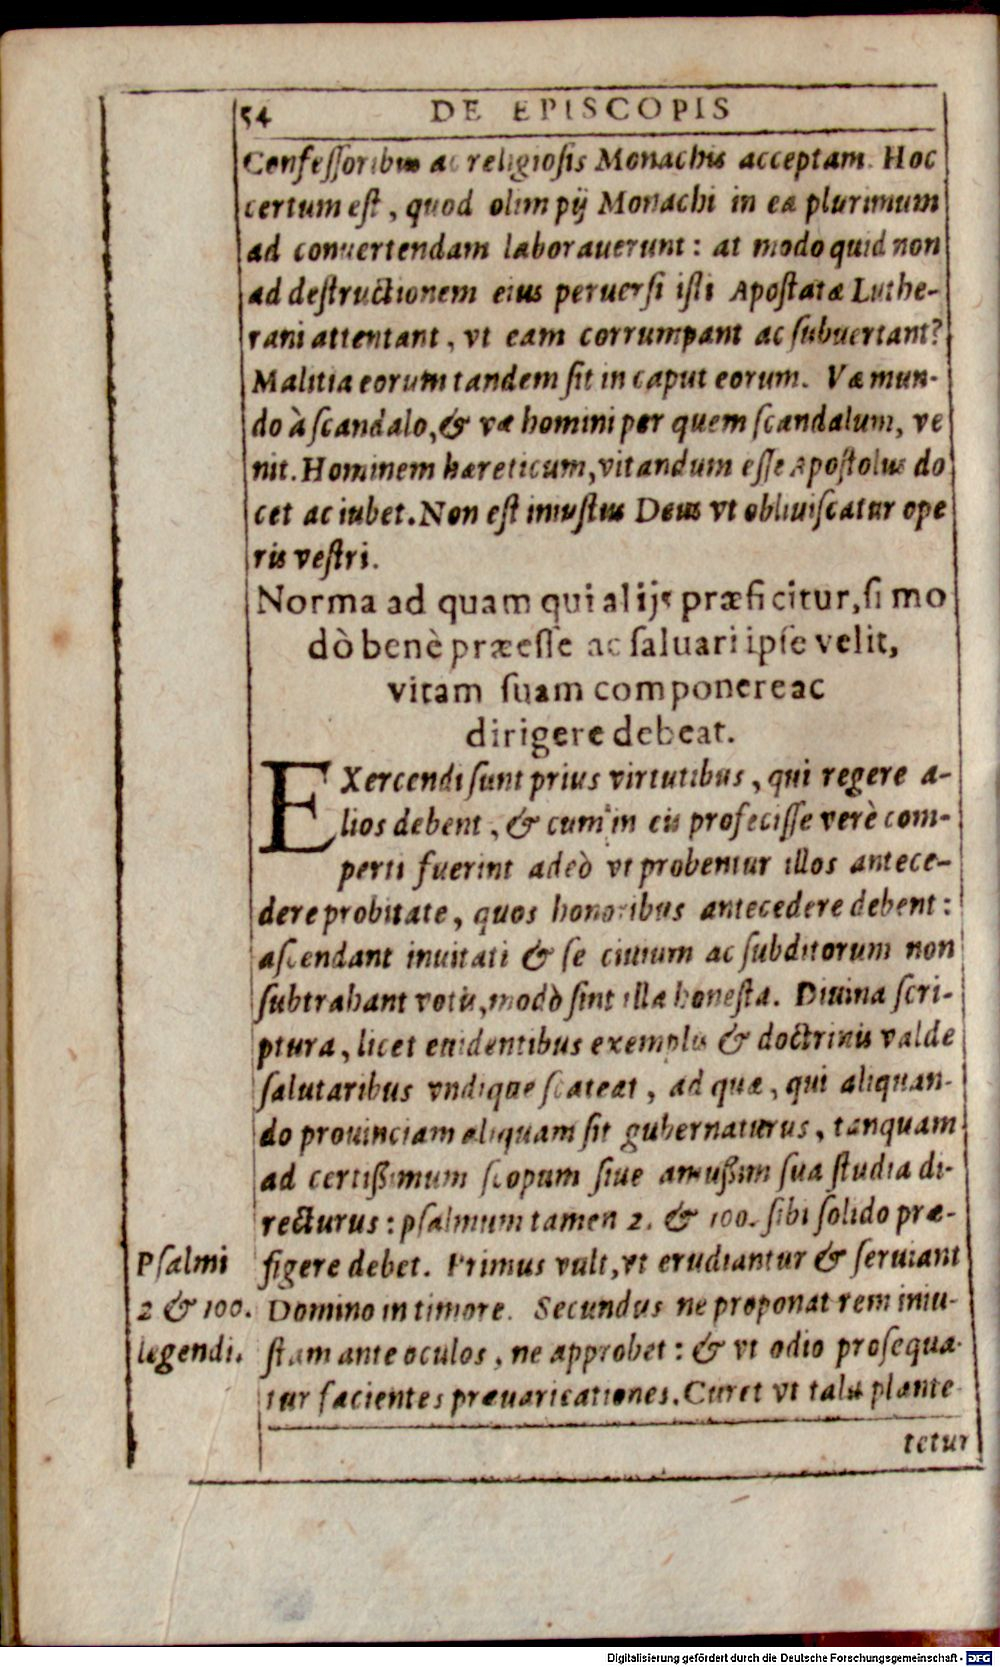 54 DE EPISCOPIS
Confessoribus ac religiosis Monachis acceptam. Hoc
certum est, quod olim pij Monachi in ea plurimum
ad convertendam laborauerunt: at modo quid non
ad destructionem eius peruersi isti Apostatæ Luthe-
rani attentant, vt eam corrumpant ac subuertant?
Malitia eorum tandem sit in caput eorum. Væ mun-
do à scandalo, & væ homini per quem scandalum, ve
nit. Hominem hæreticum, vitandum esse Apostolus do
cet ac iubet. Non est iniustus Deus vt obliuiscatur ope
ris vestri.
Norma ad quam qui alijs præficitur, si mo
dò benè præesse ac saluari ipse velit,
vitam suam componere ac
dirigere debeat.
EXercendi sunt prius virtutibus, qui regere a-
lios debent, & cum in eis profecisse verè com-
perti fuerint adeò vt probentur illos antece-
dere probitate, quos honoribus antecedere debent:
ascendant inuitati & se ciuium ac subditorum non
subtrahant votis, modò sint illa honesta. Diuina scri-
ptura, licet euidentibus exemplis & doctrinis valde
salutaribus vndique scateat, ad quæ, qui aliquan-
do prouinciam aliquam sit gubernaturus, tanquam
ad certißimum scopum siue amußim sua studia di-
recturus: psalmum tamen 2. & 100. sibi solido præ-
figere debet. Primus vult, vt erudiantur & seruiant
Domino in timore. Secundus ne proponat rem iniu-
stam ante oculos, ne approbet: & vt odio prosequa-
tur facientes præuaricationes. Curet vt talis plante
tetur
Psalmi
2 & 100.
legendi.
Digitalisierung gefördert durch die Deutsche Forschungsgemeinschaft - DFG